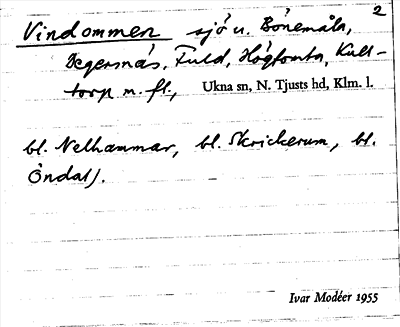 2
Vindommen sjö u. Bönemåla,
Segersnäs, Fuld, Högfonta, Kull-
torp m. fl., Ukna sn, N. Tjusts hd, Klm. l.
bl. Nelhammar, bl. Skrickerum, bl.
Öndal).
Ivar Modéer 1955